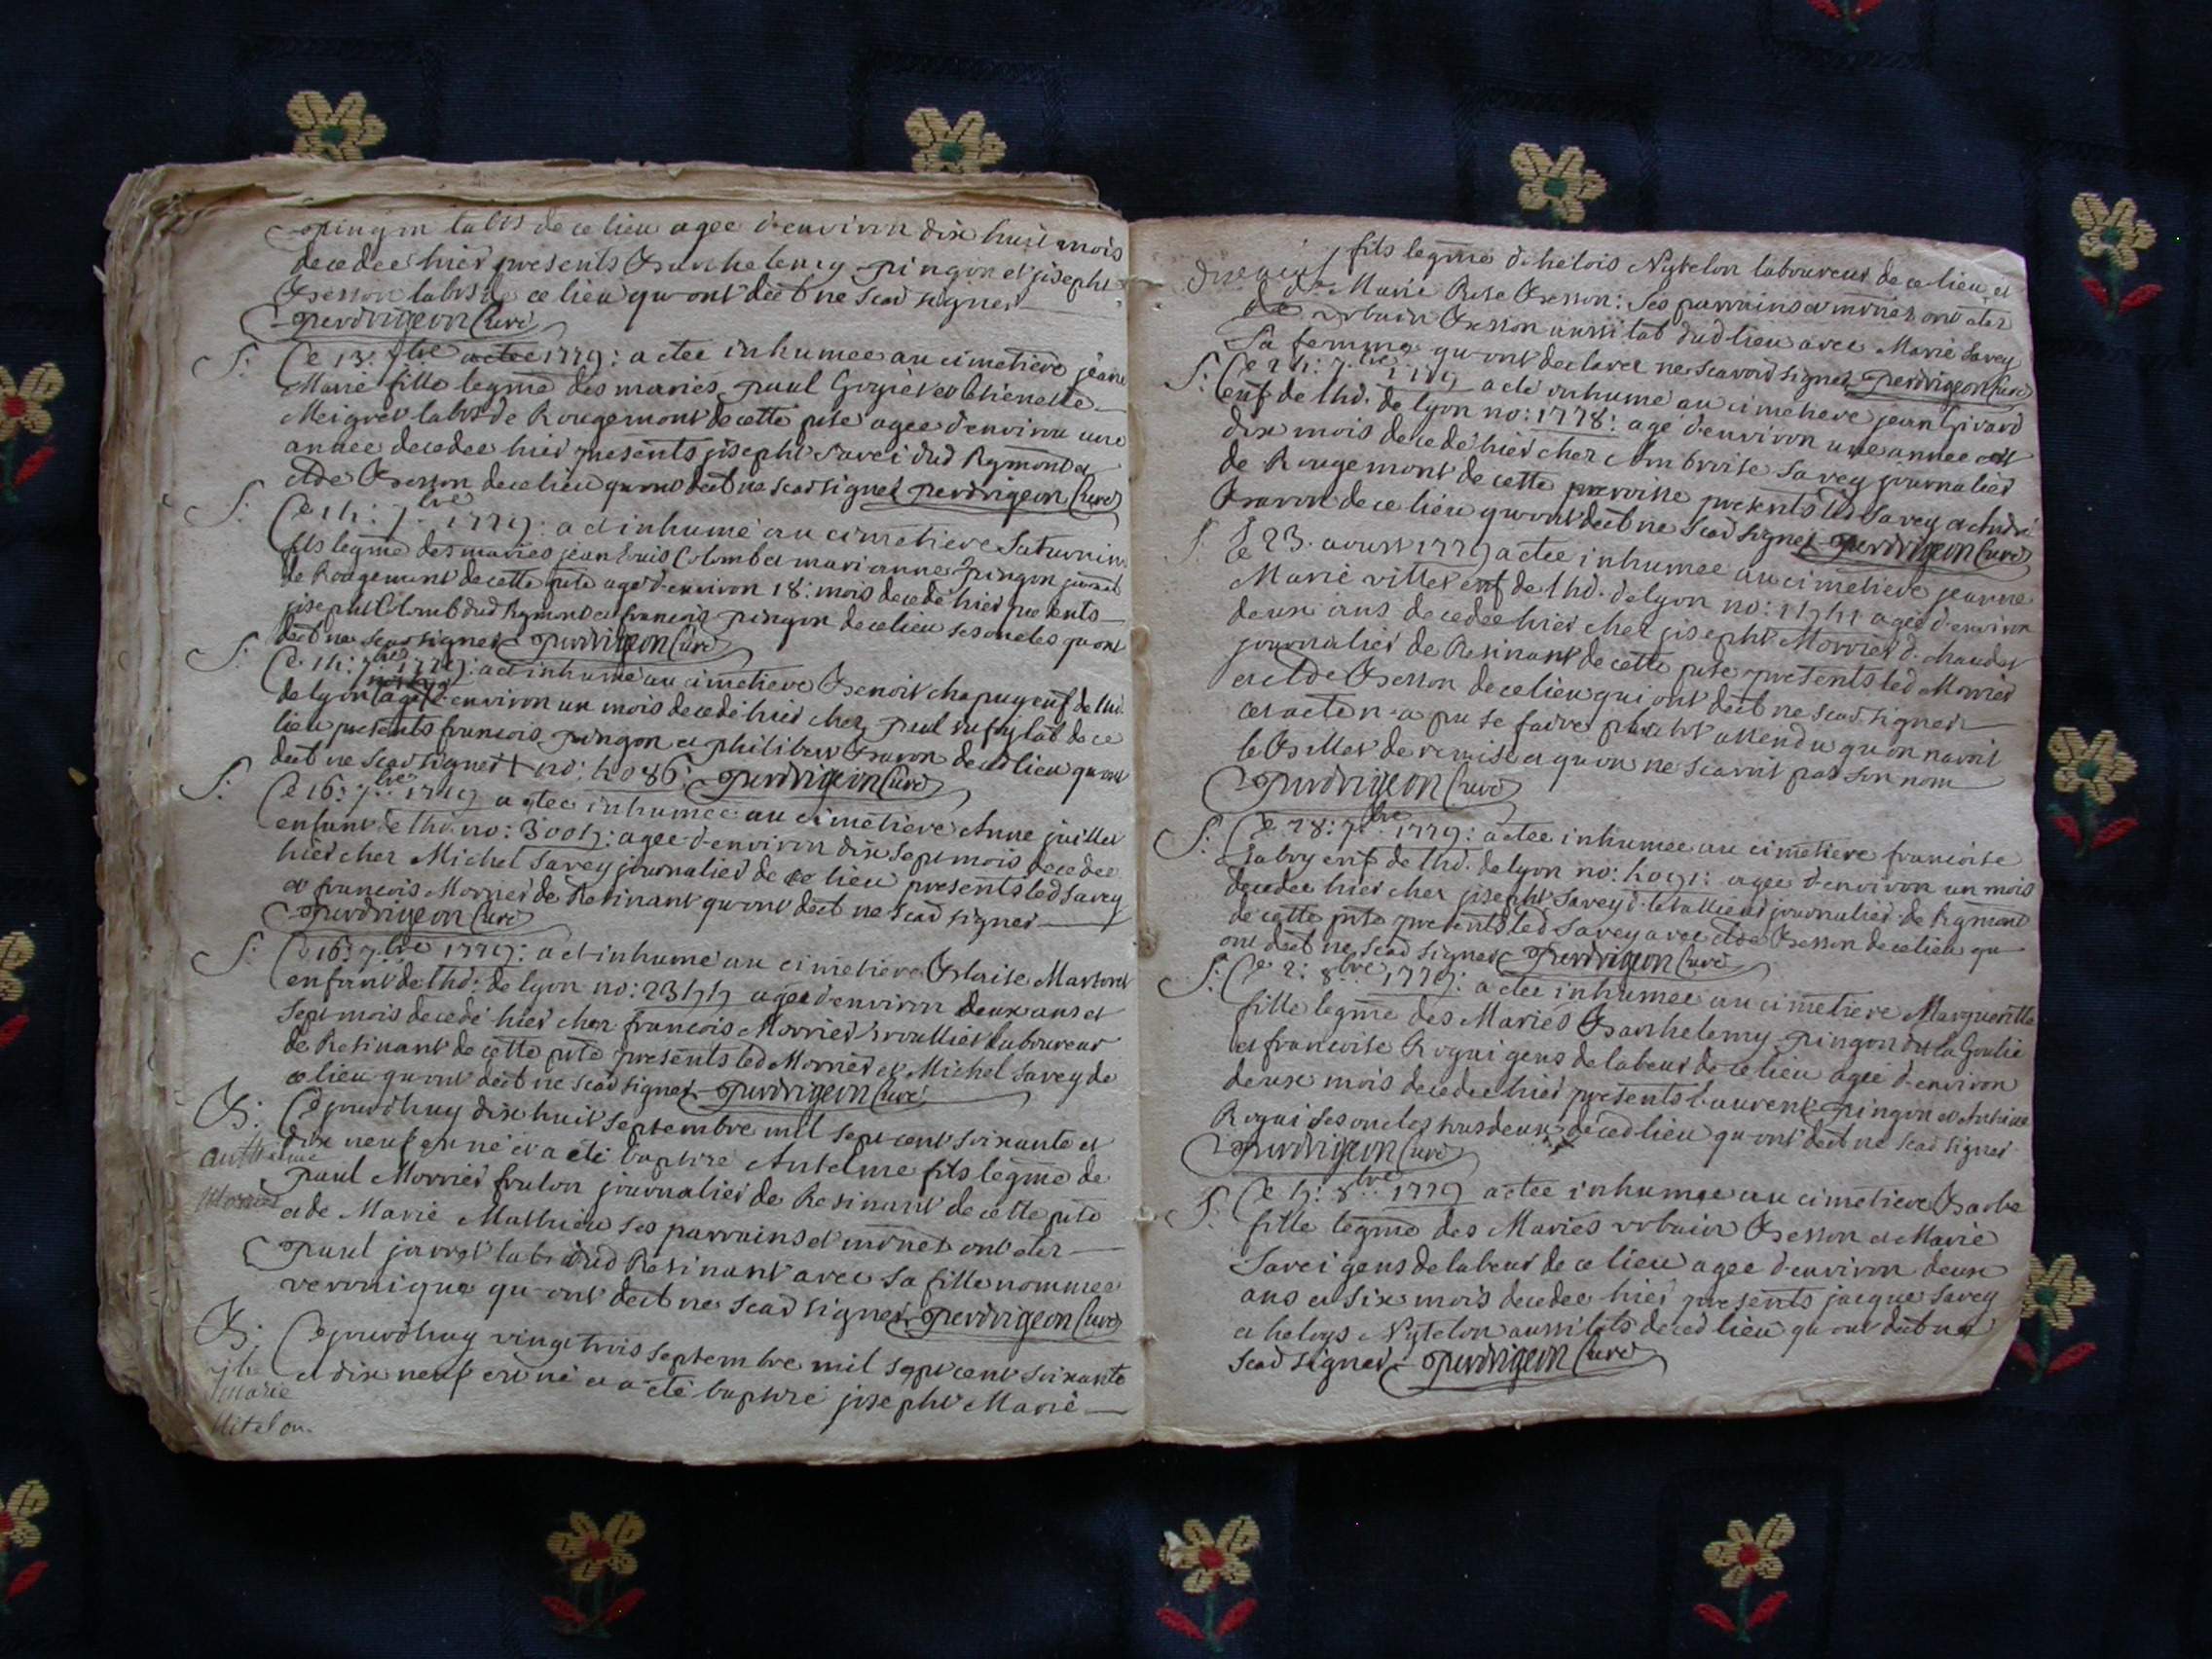 pingon labrs de ce lieu agee d'environ dix huit mois
decedee hier presents Barthelemy pingon et joseph
Besson labrs de ce lieu qu ont dect ne scad signer
perdrigeon Curé
S: Ce 13: 7bre 1779: a etee inhumee au cimetiere jeane
Marie fille legme des mariés paul et thienette
Meigret labrs de Rougemont de cette pste agee d'environ une
annee decedee hier presents joseph Savei dud Rgmont et
Besson de ce lieu qu ont dect ne scad signer perdrigeon Curé
S: Ce 14: 7bre 1779: a et inhumé au cimetiere Saturnin
fils legme des mariés jean Louis Colomb et mari anne pingon
de Rougemont de cette pste agé d'environ 18: mois decedé hier presents
joseph Colomb dud Rgmont et francois pingon de ce lieu ses oncles qu ont
dect ne scad signer perdrigeon Curé
S: Ce 14: 7bre 1779: a et inhumé au cimetiere Benoit chapuy enf de thd.
de lyon agé d'environ un mois decedé hier chez paul lab de ce
lieu presents francois pingon et philibert Bavon de ced lieu qu ont
dect ne scad signer no: 4086: perdrigeon Curé
S: Ce 16: 7bre 1779 a etee inhumee au cimetiere Anne juillet
enfant de thd. no: 3004: agee d'environ dix sept mois decedee
hier chez Michel Savey journalier de ce lieu presents led Savey
et francois Morrier de Resinant qu ont dect ne scad signer
perdrigeon Curé
S: Ce 16: 7bre 1779: a et inhumé au cimetiere Blaise
enfant de thd: de lyon no: agé d'environ deux ans et
sept mois decedé hier chez francois Morrier laboureur
de Resinant de cette pste presents led Morrier et Michel Savey de
ce lieu qu ont dect ne scad signer perdrigeon Curé
B: Cejourdhuy dix huit septembre mil sept cent soixante et
dix neuf est né et a eté baptizé Antelme fils legme de
paul Morrier foulon journalier de Resinant de cette pste
et de Marie Mathieu ses parrains et mrnes ont etez
paul lab dud Resinant avec sa fille nommee
veronique qu ont dect ne scad signer perdrigeon Curé
B: Cejourdhuy vingt trois septembre mil sept cent soixante
et dix neuf est né et a eté baptizé joseph Marie
Morrier
marie
Nitelon.
fils legme d'helois Nytelon laboureur de ce lieu et
de Marie Rose Besson: ses parrains et mrnes ont etez
urbain Besson aussi lab dud lieu avec Marie Savey
sa femme qu ont declaré ne scavoir signer perdrigeon Curé
S: Ce 24: 7bre 1779 a eté inhumé au cimetiere jean Givard
enf de thd. de lyon no: 1778: agé d'environ une annee et
dix mois decedé hier chez Ambroise Savey journalier
de Rougemont de cette parroisse presents led Savey et André
Bavon de ce lieu qu ont dect ne scad signer perdrigeon Curé
S: Ce 23. aoust 1779 a etee inhumee au cimetiere jeanne
Marie villet enf de thd. de lyon no: agee d'environ
deux ans decedee hier chez joseph Morrier d.
journalier de Resinant de cette pste presents led Morrier
et Besson de ce lieu qui ont dect ne scad signer
cet acte n'a pu se faire attendu qu'on navoit
le Billet de remise et qu'on ne scavoit pas son nom
perdrigeon Curé
S: Ce 28: 7bre 1779: a etee inhumee au cimetiere francoise
enf de thd. de lyon no: 4091: agee d'environ un mois
decedee hier chez joseph Savey journalier de Rgmont
de cette pste presents led Savey avec Besson de ce lieu qu
ont dect ne scad signer perdrigeon Curé
S: Ce 2: 8bre 1779: a etee inhumee au cimetiere Margueritte
fille legme des Mariés Barthelemy pingon dit la Goulie
et francoise Rogni gens de labeur de ce lieu agee d'environ
deux mois decedee hier presents Laurent pingon et Antoine
Rogni ses oncles tous deux de ced lieu qu ont dect ne scad signer
perdrigeon Curé
S: Ce 4: 8bre 1779 a etee inhumee au cimetiere Barbe
fille legme des Mariés urbain Besson et Marie
Savei gens de labeur de ce lieu agee d'environ deux
ans et six mois decedee hier presents jacque Savey
et heloys Nytelon aussi labs de ced lieu qu ont dect ne
scad signer perdrigeon Curé